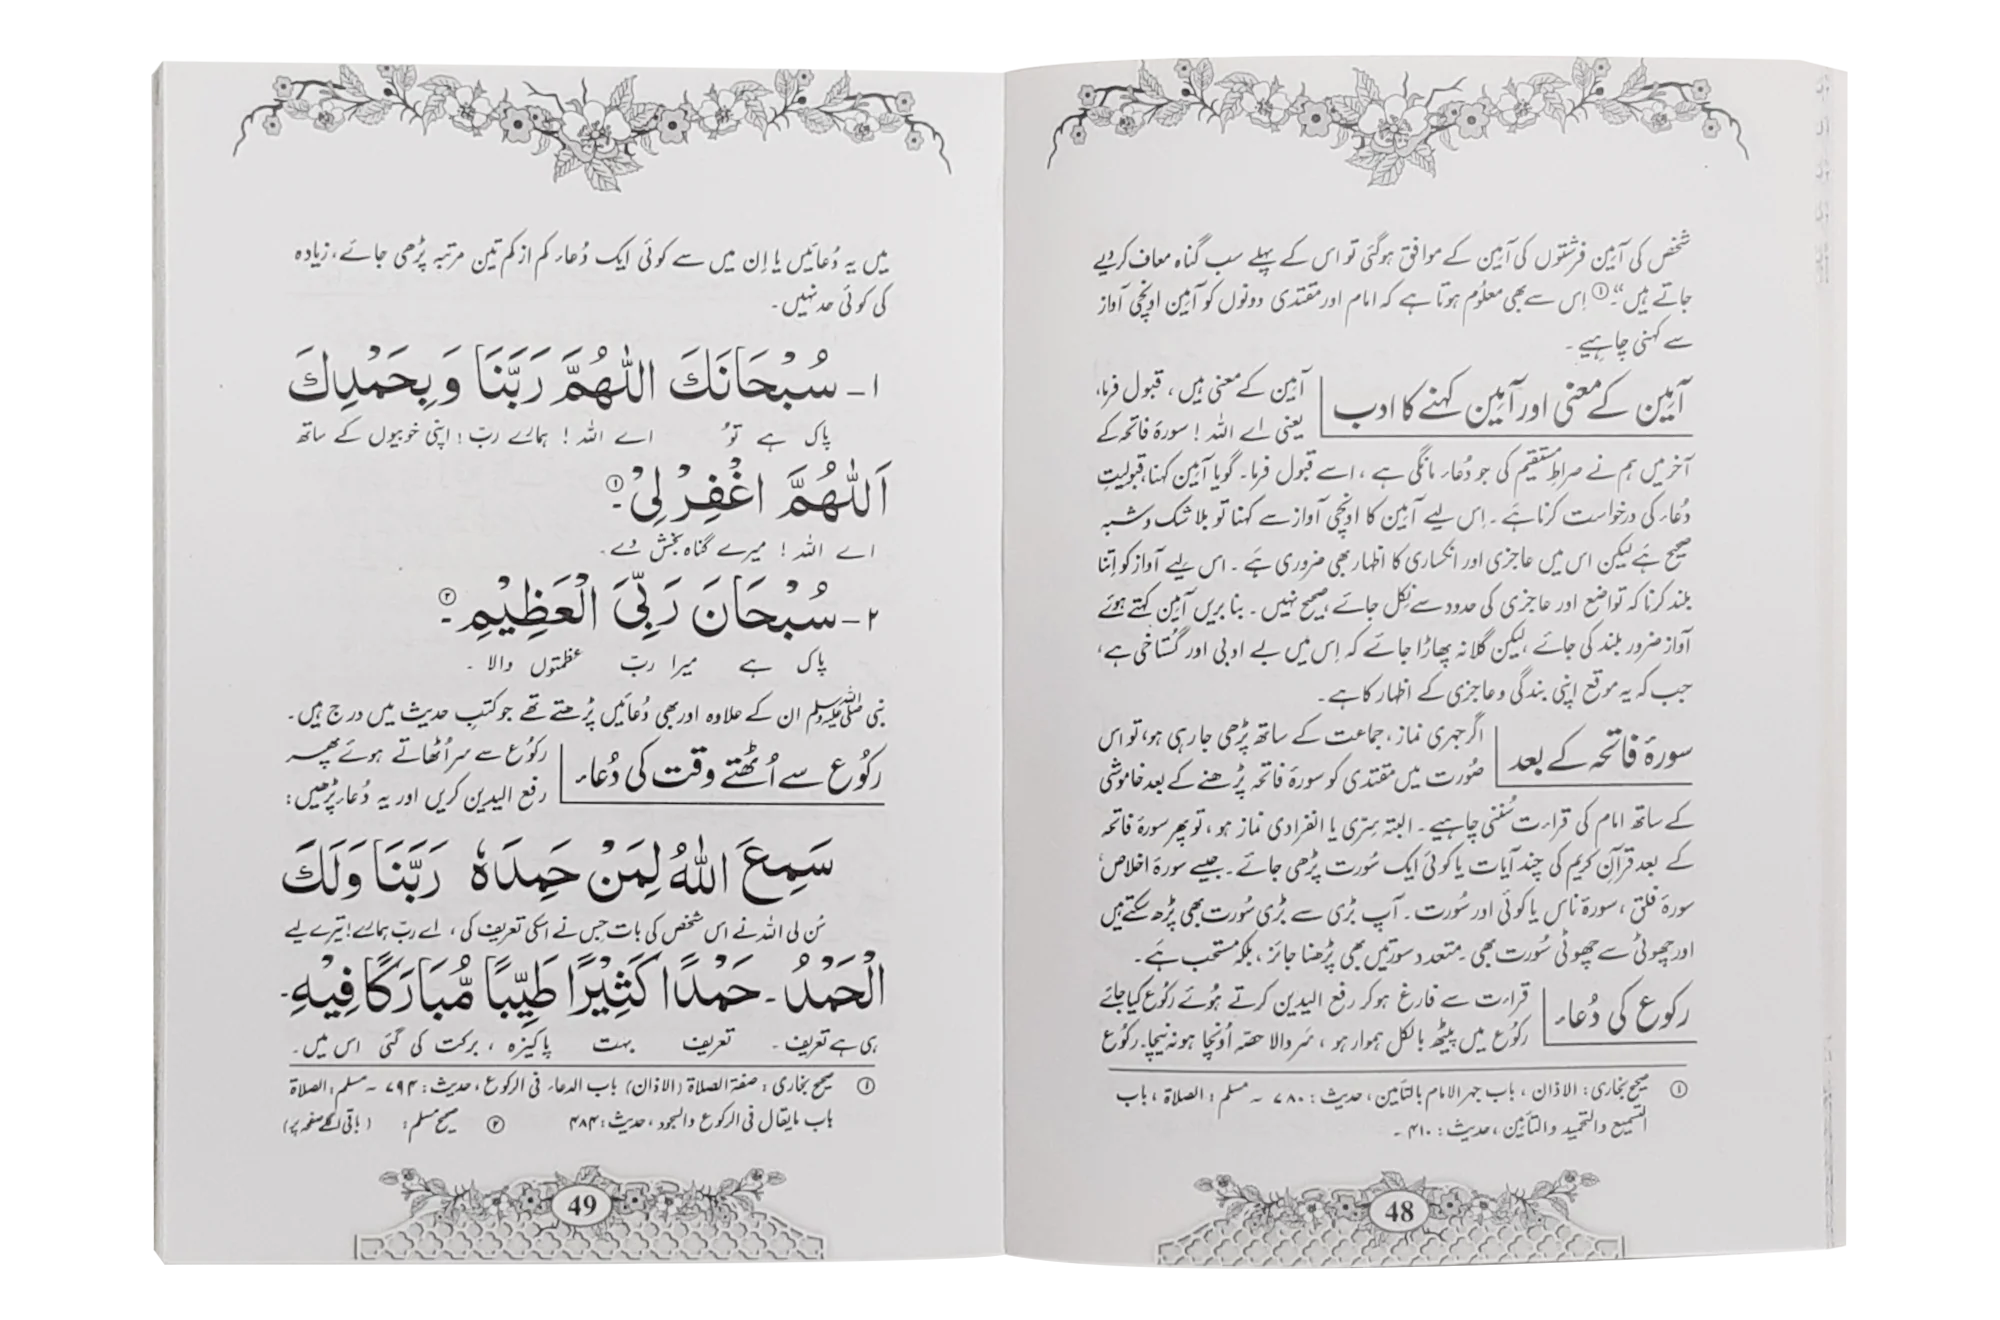 شخص کی آمین فرشتوں کی آمین کے موافق ہوگئی تو اس کے پہلے سب گناہ معاف کر دیے
جاتے ہیں“۔① اِس سے بھی معلُوم ہوتا ہے کہ امام اور مقتدی دونوں کو آمِین اونچی آواز
سے کہنی چاہیے ۔
آمِین کے معنی اور آمِین کہنے کا ادب
آمِین کے معنی ہیں ، قبول فرما،
یعنی اے اللہ ! سورۂ فاتحہ کے
آخر میں ہم نے صراطِ مستقیم کی جو دُعاء مانگی ہے ، اسے قبول فرما۔ گویا آمِین کہنا، قبولیتِ
دُعاء کی درخواست کرنا ہے ۔ اِس لیے آمِین کا اونچی آواز سے کہنا تو بلا شک و شبہ
صحیح ہے لیکن اس میں عاجزی اور انکساری کا اظہار بھی ضروری ہے ۔ اس لیے آواز کو اِتنا
بلند کرنا کہ تواضع اور عاجزی کی حدود سے نِکل جائے ، صحیح نہیں ۔ بنا بریں آمِین کہتے ہوئے
آواز ضرور بلند کی جائے ، لیکن گلا نہ پھاڑا جائے کہ اِس میں بے ادبی اور گستاخی ہے ،
جب کہ یہ موقع اپنی بندگی و عاجزی کے اظہار کا ہے ۔
سورۂ فاتحہ کے بعد
اگر جہری نماز ، جماعت کے ساتھ پڑھی جا رہی ہو، تو اس
صُورت میں مقتدی کو سورۂ فاتحہ پڑھنے کے بعد خاموشی
کے ساتھ امام کی قراءت سُننی چاہیے ۔ البتہ سِرّی یا انفرادی نماز ہو ، تو پھر سورۂ فاتحہ
کے بعد قرآنِ کریم کی چند آیات یا کوئی ایک سُورت پڑھی جائے ۔ جیسے سورۂ اخلاص ،
سورۂ فلق ، سورۂ ناس یا کوئی اور سُورت ۔ آپ بڑی سے بڑی سُورت بھی پڑھ سکتے ہیں
اور چھوٹی سے چھوٹی سُورت بھی ۔ متعدد سورتیں بھی پڑھنا جائز ، بلکہ مستحب ہے ۔
رکوع کی دُعاء
قراءت سے فارغ ہو کر رفع الیدین کرتے ہُوئے رکُوع کیا جائے
رکُوع میں پیٹھ بالکل ہموار ہو ، سَر والا حصّہ اُونچا ہو نہ نیچا۔ رکُوع
① صحیح بخاری : الاذان ، باب جہر الامام بالتأمین ، حدیث : ۷۸۰ ۔ مسلم : الصلاۃ ، باب
التسمیع والتحمید والتأمین ، حدیث : ۴۱۰ ۔
48
میں یہ دُعائیں یا اِن میں سے کوئی ایک دُعاء کم از کم تین مرتبہ پڑھی جائے ، زیادہ
کی کوئی حد نہیں ۔
۱ـ سُبْحَانَكَ اللّٰهُمَّ رَبَّنَا وَبِحَمْدِكَ
پاک ہے تُو اے اللہ ! ہمارے ربّ ! اپنی خوبیوں کے ساتھ
اَللّٰهُمَّ اغْفِرْ لِيْ ـ①
اے اللہ ! میرے گناہ بخش دے ۔
۲ـ سُبْحَانَ رَبِّيَ الْعَظِيْمِ ـ②
پاک ہے میرا ربّ عظمتوں والا ۔
نبی صلی اللہ علیہ وسلم ان کے علاوہ اور بھی دُعائیں پڑھتے تھے جو کتبِ حدیث میں درج ہیں ۔
رکُوع سے اُٹھتے وقت کی دُعاء
رکُوع سے سر اُٹھاتے ہوئے پھر
رفع الیدین کریں اور یہ دُعاء پڑھیں :
سَمِعَ اللّٰهُ لِمَنْ حَمِدَهٗ رَبَّنَا وَلَكَ
سُن لی اللہ نے اس شخص کی بات جس نے اسکی تعریف کی ، اے ربّ ہمارے! تیرے لیے
الْحَمْدُ ـ حَمْدًا كَثِيْرًا طَيِّبًا مُّبَارَكًا فِيْهِ ـ
ہی ہے تعریف ۔ تعریف بہت پاکیزہ ، برکت کی گئی اس میں ۔
① صحیح بخاری : صفۃ الصلاۃ (الاذان) باب الدعاء فی الرکوع ، حدیث : ۷۹۴ ۔ مسلم : الصلاۃ
باب مایقال فی الرکوع والسجود ، حدیث : ۴۸۴ ② صحیح مسلم : (باقی اگلے صفحہ پر)
49